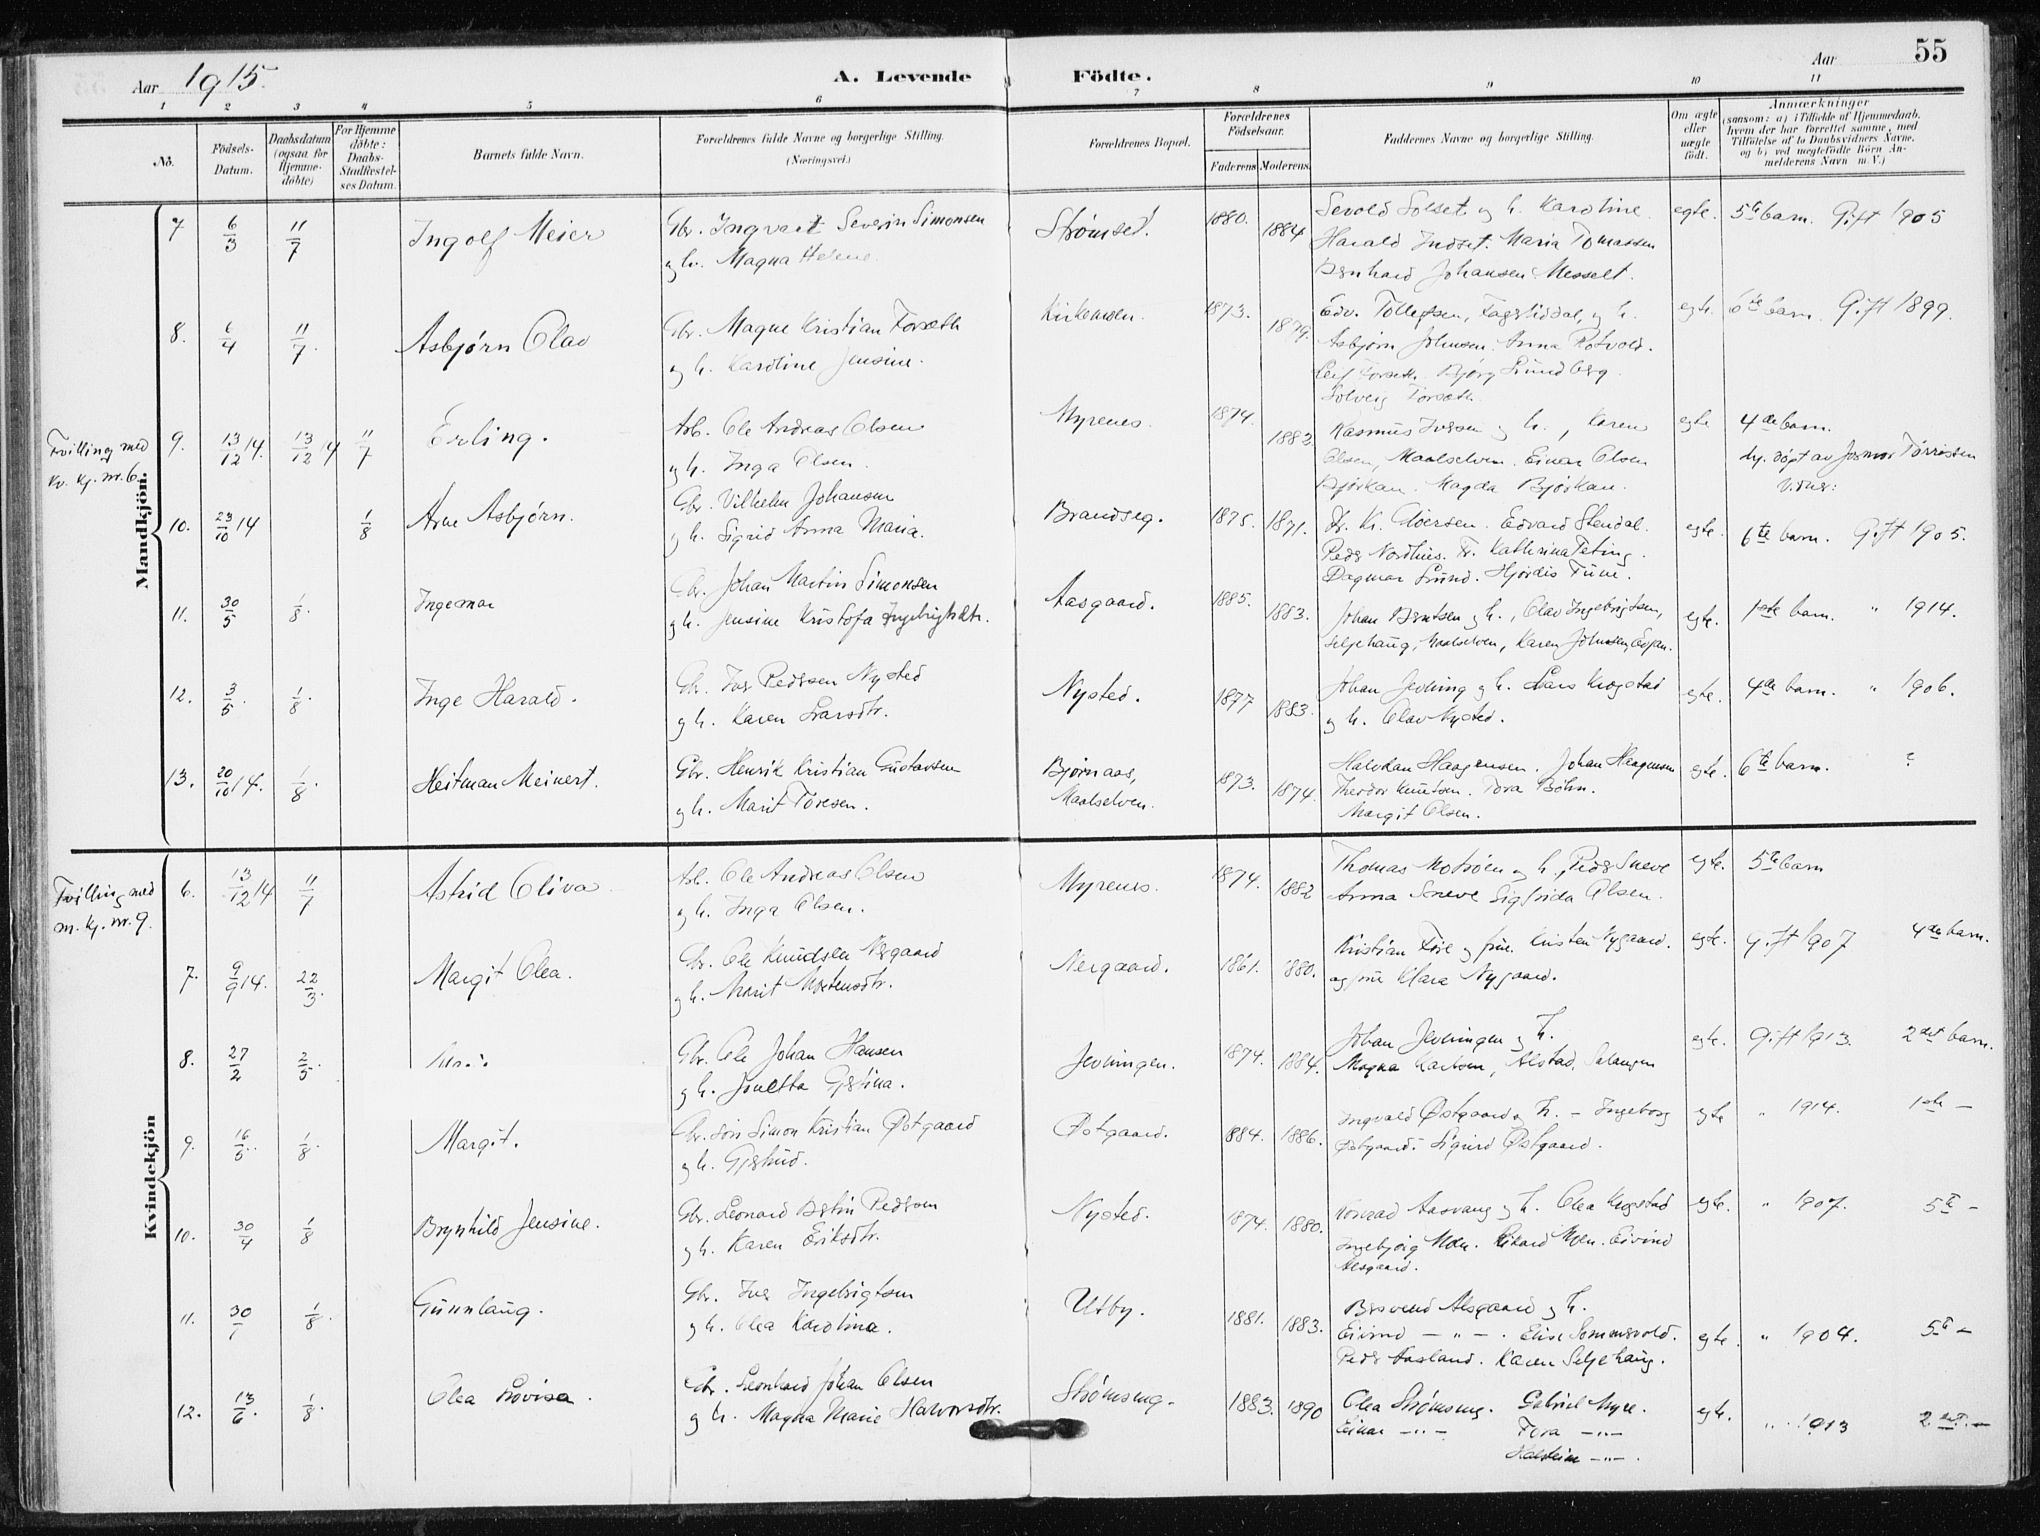 55
Aar 1915.
A. Levende Födte.
Aar
1 2 3 4 5 6 7 8 9 10 11
No.
Födsels-
Datum.
Daabsdatum
(ogsaa for
Hjemme-
döbte)
For Hjemme
döbte:
Daabs-
Stadfestel-
ses Datum.
Barnets fulde Navn.
Forældrenes fulde Navne og borgerlige Stilling.
(Næringsvei.)
Forældrenes Bopæl.
Forældrenes
Födselsaar.
Faderens Moderens
Faddernes Navne og borgerlige Stilling.
Om ægte
eller
uægte
födt.
Anmærkninger
(saasom: a) i Tilfælde af Hjemmedaab,
hvem der har forrettet samme, med
Tilföielse af to Daabsvidners Navne,
og b) ved uægtefödte Börn An-
melderens Navn m. V.)
Mandkjön.
7 6/3 11/7 Ingolf Meier
Gbr. Ingvart Severin Simonsen
og h. Magna Helene
Strømset. 1880. 1884
Sevold Solset og h. Karoline.
Harald Indset. Maria Tomassen
Bernhard Johansen Messelt.
egte. 5te barn. Gift 1905
8. 6/4 11/7. Asbjørn Olav
Gbr. Magne Kristian Forseth
og h. Karoline Jensine.
Kirkemoen. 1873. 1879.
Edv. Tollefsen, Fagerliddal, og h.
Asbjørn Johnsen. Anna Rotvold.
Leif Forseth. Bjørg Lundberg
Solveig Forseth.
egte. 6te barn. Gift 1899.
Tvilling med
kv. kj. nr. 6.
9. 13/12 14. 13/12 14 11/7 Erling.
Arb. Ole Andreas Olsen
og h. Inga Olsen.
Myrenes. 1874. 1882.
Rasmus Iversen og h., Karen
Olsen, Maalselven. Einar Olsen
Bjørkan. Magda Bjørkan.
egte 4de barn.
hj. døpt av Tørrissen
10. 23/10 14 1/8 Arne Asbjørn.
Gbr. Vilhelm Johansen
og h. Sigrid Anna Maria.
Brandseg. 1875. 1871.
Fr. Kr. Edvard Stendal.
Peder Nordhus. Fr. Kathrina Teting.
Dagmar Lund. Hjørdis Tune.
egte. 6te barn. Gift 1905.
11. 30/5 1/8. Ingemar
Gbr. Johan Martin Simonsen
og h. Jensine Kristofa Ingebrigtsdtr.
Aasgaard. 1885. 1883.
Johan Berntsen og h., Olav Ingebrigtsen,
Seljehaug, Maalselven, Karen Johnsen,
egte. 1ste barn. " 1914.
12. 3/5. 1/8. Inge Harald.
Gbr. Iver Pedersen Nysted
og h. Karen Larsdtr.
Nysted. 1877 1883.
Johan Jevning og h. Lars Krogstad
og h. Olav Nysted.
egte. 4de barn. " 1906.
13. 20/10 14. 1/8. Heitman Meinert.
Gbr. Henrik Kristian Gustavsen
og h. Marit Toresen.
Bjørnaas,
Maalselven. 1873. 1874.
Halvdan Haagensen. Johan Haagensen
Theodor Knutsen. Tora Bøhn.
Margit Olsen.
egte. 6te barn. ?
Kvindekjön
Tvilling med
m. kj. nr. 9.
6. 13/12 14 11/7 Astrid Oliva
Arb. Ole Andreas Olsen
og h. Inga Olsen.
Myrenes. 1874. 1882
Thomas Motrøen og h., Peder Sneve
Anna Sneve Sigfrida Olsen.
egte. 5te barn
7. 9/9 14. 22/3. Margit Olea.
Gbr. Ole Knudsen Nergaard
og h. Marit Mortensdtr.
Nergaard. 1861. 1880.
Kristian Fire og frue. Kristen Nygaard.
og frue Klara Nygaard.
egte. Gift 1907 4de barn.
8. 27/2 2/5.
Gbr. Ole Johan Hansen
og h. Jonetta Gjertina.
Jevningen. 1874. 1884.
Johan Jevningen og h.
Magna Karlsen, Alstad, Salangen
egte. Gift 1913. 2det barn.
9. 16/5.. 1/8. Margit.
Gbr. søn Simon Kristian Østgaard
og h. Gjertrud.
Østgaard. 1884. 1886.
Ingvald Østgaard og h. - Ingeborg
Østgaard. Sigurd Østgaard.
egte " 1914. 1ste -
10. 30/4 1/8 Brynhild Jensine.
Gbr. Leonard Bertin Pedersen
og h. Karen Eriksdtr.
Nysted. 1874. 1880.
Konrad Aasvang og h. Olea Krogstad
Ingebjørg Moen. Rikard Moen. Eivind
Alsgaard.
egte. " 1907. 5te -
11. 30/7 1/8. Gunnlaug.
Gbr. Iver Ingebrigtsen
og h. Olea Karolina.
Utby. 1881. 1883.
Bersvend Alsgaard og h.
Eivind — " — . Elise Sommervold.
Peder Aasland. Karen Seljehaug.
egte. " 1904. 5te -
12. 13/6. 1/8. Olea Lovisa.
Gbr. Leonhard Johan Olsen
og h. Magna Marie Halvorsdtr.
Strømseng. 1883. 1890
Olea Strømseng. Gabriel Myre.
Einar — " — Tora — " —
Halstein — " — .
egte. " . 1913 2det. -